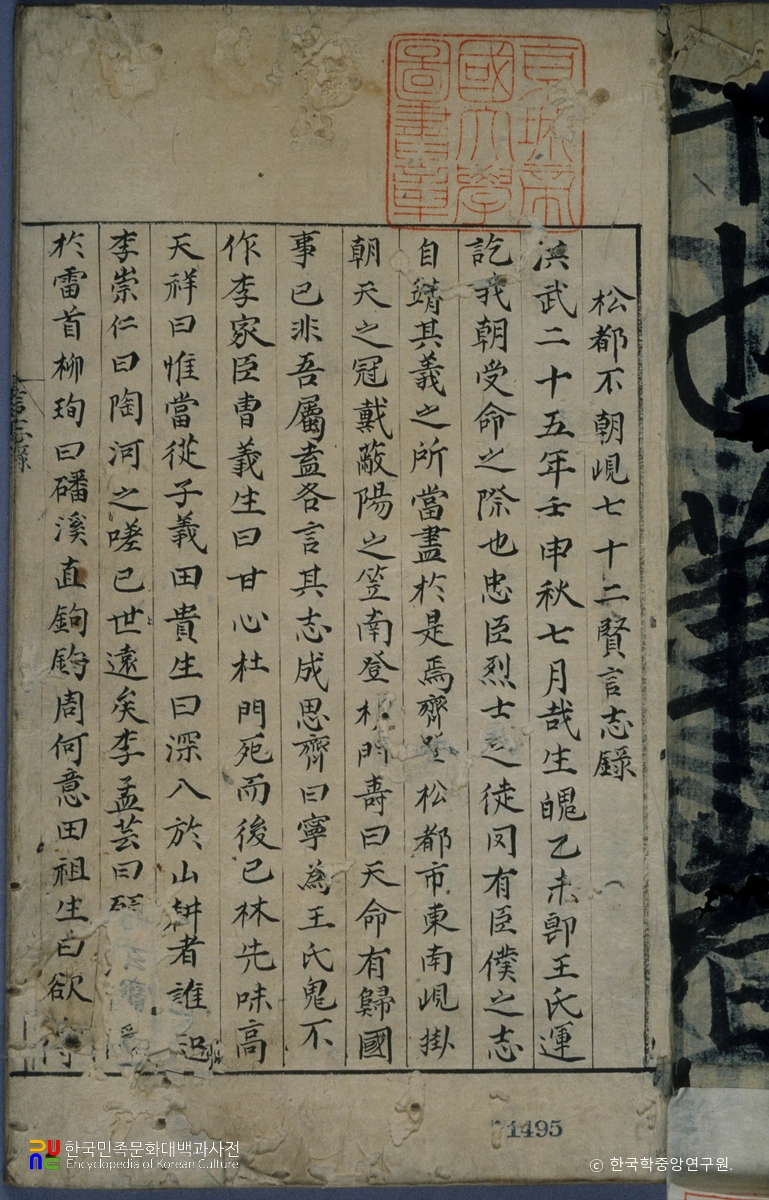 京城帝
國大學
圖書章
松都不朝峴七十二賢言志錄
洪武二十五年壬申秋七月哉生魄乙未卽王氏運
訖我朝受命之際也忠臣烈士之徒罔有臣僕之志
自靖其義之所當盡於是焉齊登松都市東南峴掛
朝天之冠戴蔽陽之笠南登 門壽曰天命有歸國
事已非吾屬盍各言其志成思齊曰寧為王氏鬼不
作李家臣曺義生曰甘心杜門死而後已林先味高
天祥曰惟當從子義田貴生曰深入於山耕者誰
李崇仁曰陶河之嗟已世遠矣李孟芸曰
於雷首柳珣曰磻溪直鉤釣周何意田祖生曰欲
言志錄
1495
한국민족문화대백과사전
Encyclopedia of Korean Culture
© 한국학중앙연구원.